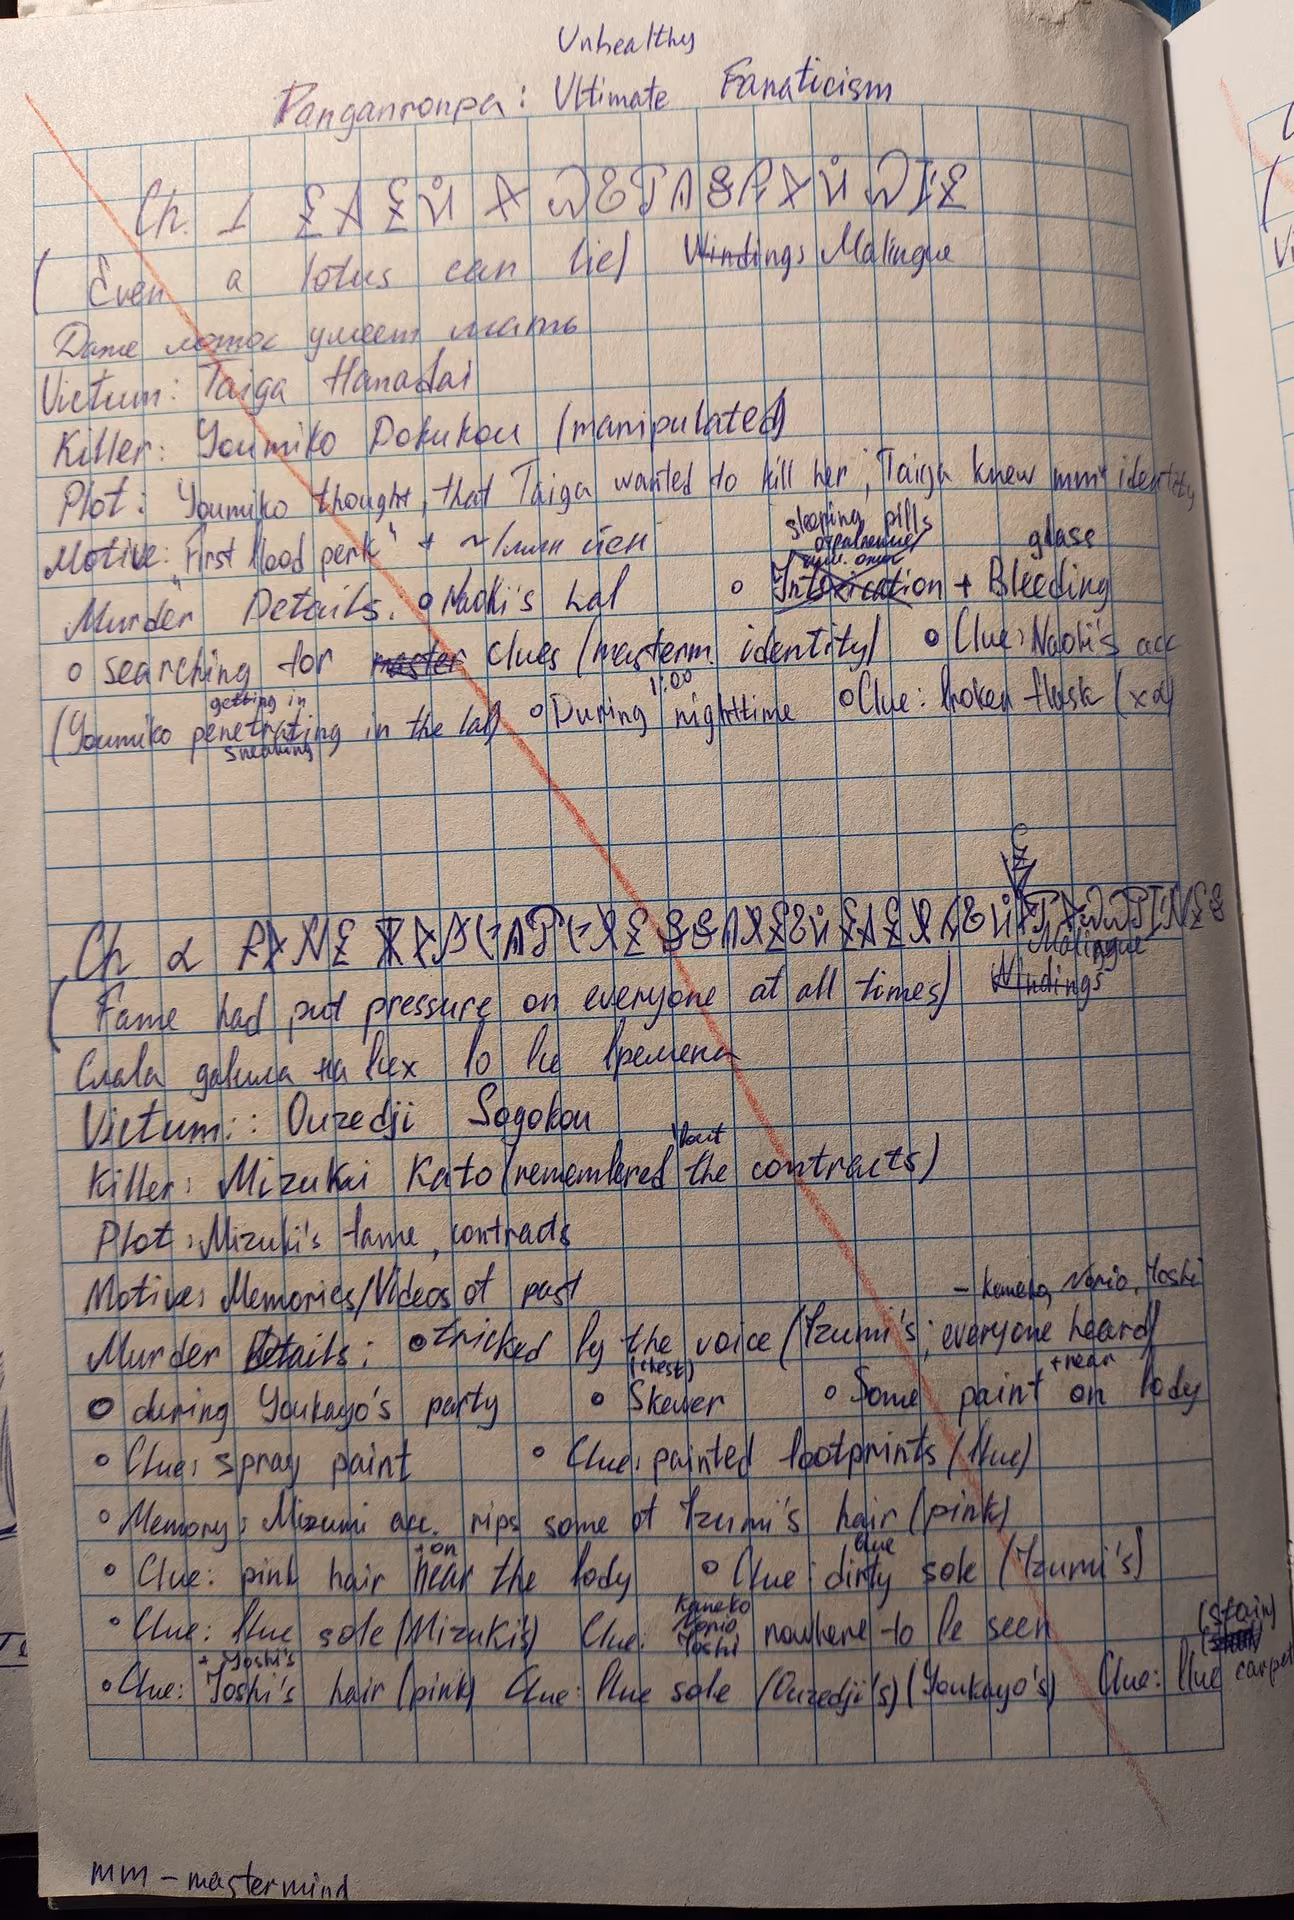 Unhealthy
Danganronpa: Ultimate Fanaticism
Ch. 1
(Even a lotus can lie) Windings Malingue
Даже лотос умеет лгать
Victum: Taiga Hanadai
Killer: Youmiko Dokukou (manipulated)
Plot: Youmiko thought, that Taiga wanted to kill her; Taiga knew mm's identity
sleeping pills
glass
Motive: "First blood perk" +
Murder Details: o Naoki's lab o Intoxication + Bleeding
o searching for master clues (masterm. identity) o Clue: Naoki's acc
getting in
1:00
(Youmiko penetrating in the lab) o During nighttime o Clue: broken flask (x2)
sneaking
Ch 2
Malingue
(Fame had put pressure on everyone at all times) Windings
Слава давила на всех во все времена
Victum:: Ouzedji Sogokou
'bout
Killer: Mizuki Kato (remembered the contracts)
Plot: Mizuki's fame, contracts
Motive: Memories/Videos of past
- Kaneko, Norio, Yoshi
Murder Details: o tricked by the voice (Izumi's; everyone heard)
(chest)
+ near
o during Youkayo's party o Skewer o Some paint on body
o Clue: spray paint o Clue: painted footprints (blue)
o Memory: Mizumi acc. rips some of Izumi's hair (pink)
+ on
blue
o Clue: pink hair near the body o Clue: dirty sole (Izumi's)
Kaneko
Norio
(stain)
o Clue: blue sole (Mizuki's) Clue: Yoshi nowhere to be seen
+ Yoshi's
o Clue: Yoshi's hair (pink) Clue: blue sole (Ouzedji's) (Youkayo's) Clue: blue carpet
mm - mastermind